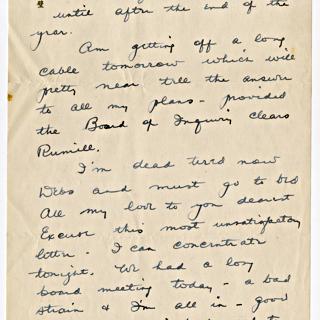 until after the end of the
year.
Am getting off a long
cable tomorrow which will
pretty near tell the answer
to all my plans - provided
the Board of Inquiry clears
Rumill.
I'm dead tired now
Debs and must go to bed
All my love to you dearest
Excuse this most unsatisfactory
letter. I can concentrate
tonight. We had a long
board meeting today - a bad
strain & I'm all in - good